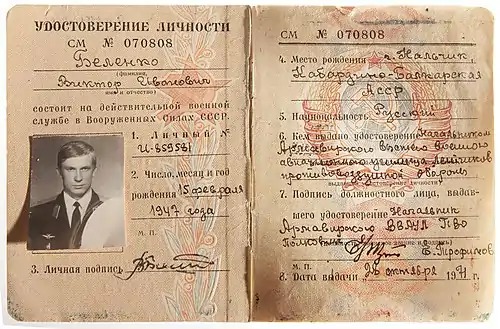 УДОСТОВЕРЕНИЕ ЛИЧНОСТИ
СМ № 070808
Беленко
(фамилия,
Виктор Иванович
имя и отчество)
состоит на действительной военной
службе в Вооруженных Силах СССР.
1. Личный №
И-859531
2. Число, месяц и год
рождения 15 февраля
1947 года
м. п.
3. Личная подпись
СМ № 070808
4. Место рождения г. Нальчик,
Кабардино-Балкарская
АССР
5. Национальность Русский
6. Кем выдано удостоверение Начальником
Армавирского Высшего Военного
авиационного училища летчиков
противовоздушной обороны
7. Подпись должностного лица, выдав-
шего удостоверение Начальник
Армавирского ВВАУЛ ПВО
Полковник Е. Трофимов
м. п.
8. Дата выдачи 26 октября 1971 г.